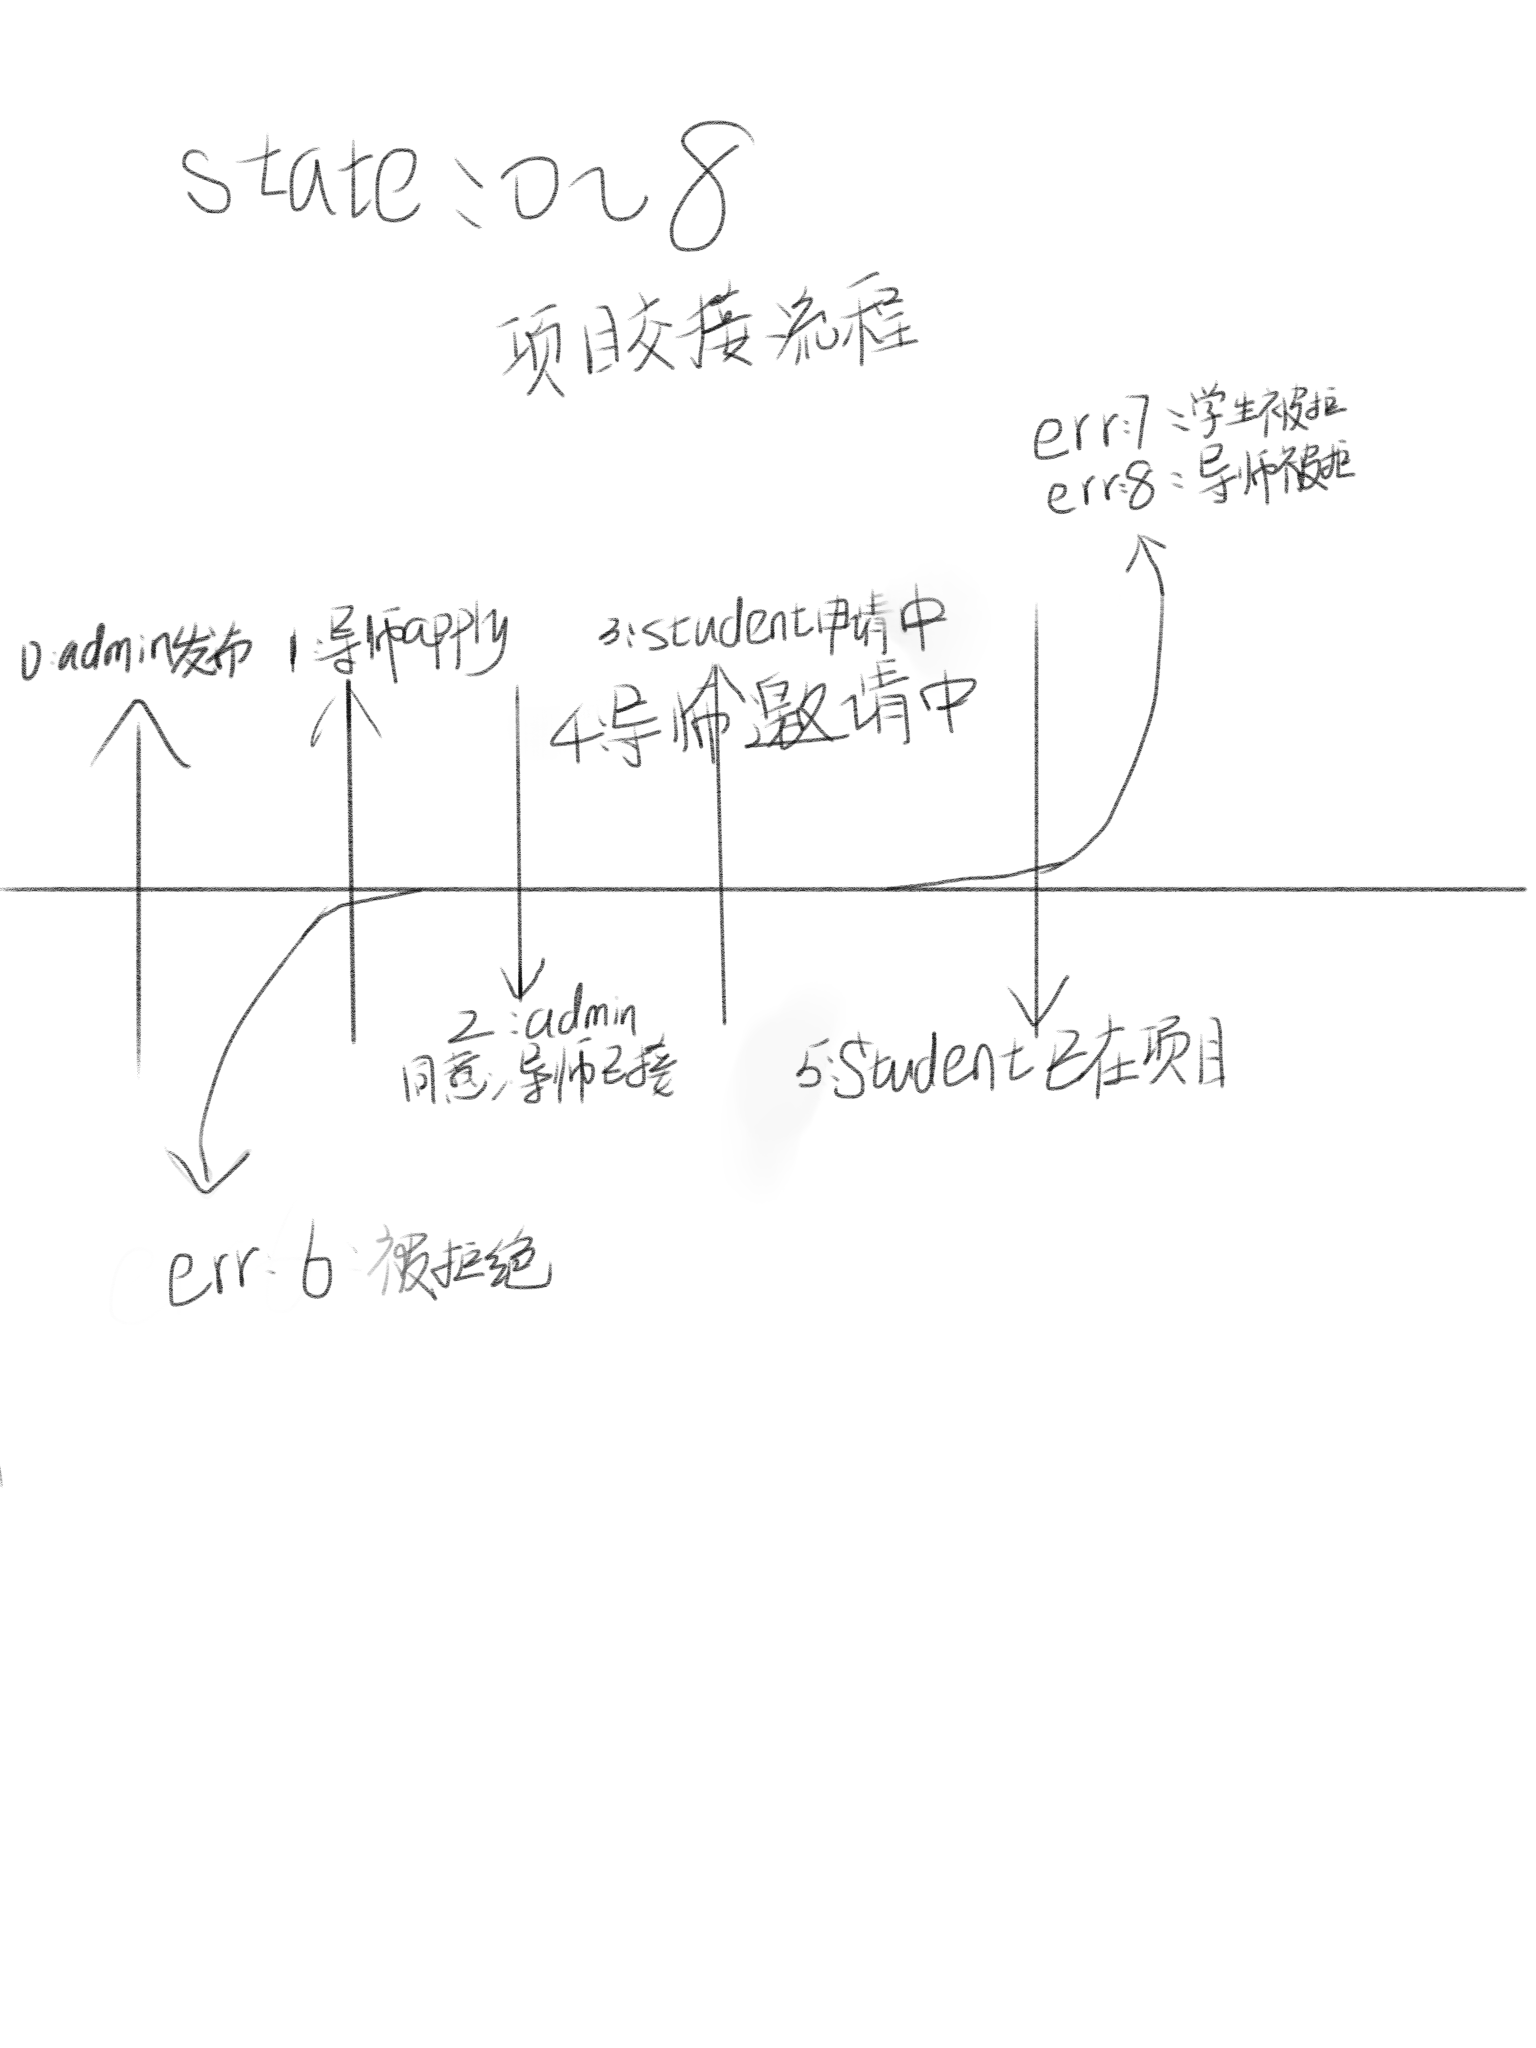 state:0~8
项目交接流程
err:7:学生被拒
err:8:导师被拒
0:admin发布
1:导师apply
3:student申请中
4:导师邀请中
2:admin
同意,导师已接
5:Student已在项目
err:6:被拒绝